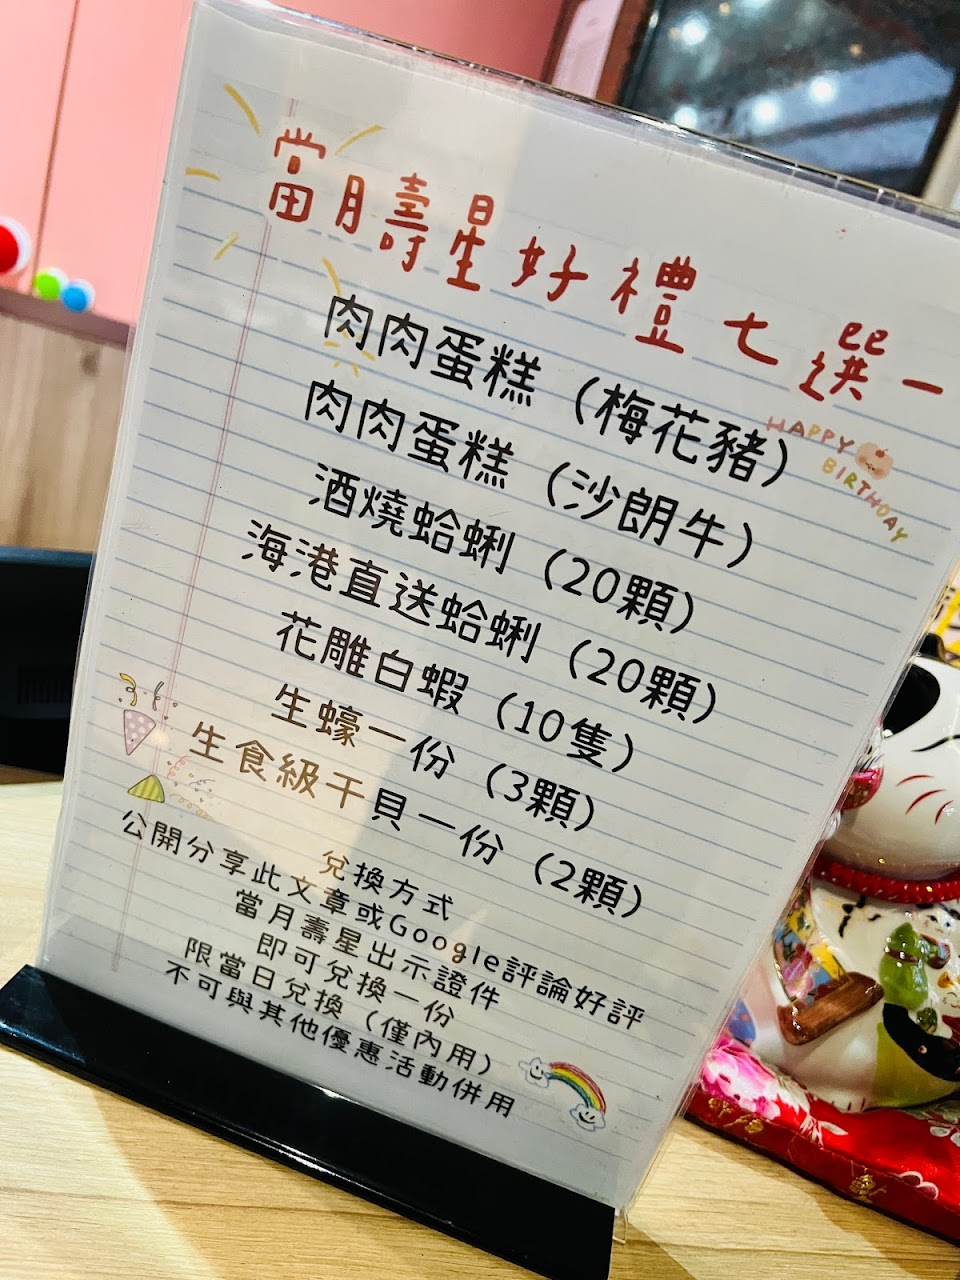 當月壽星好禮七選一
肉肉蛋糕（梅花豬）
HAPPY
BIRTHDAY
肉肉蛋糕（沙朗牛）
酒燒蛤蜊（20顆）
海港直送蛤蜊（20顆）
花雕白蝦（10隻）
生蠔一份（3顆）
生食級干貝一份（2顆）
兌換方式
公開分享此文章或Google評論好評
當月壽星出示證件
即可兌換一份
限當日兌換（僅內用）
不可與其他優惠活動併用